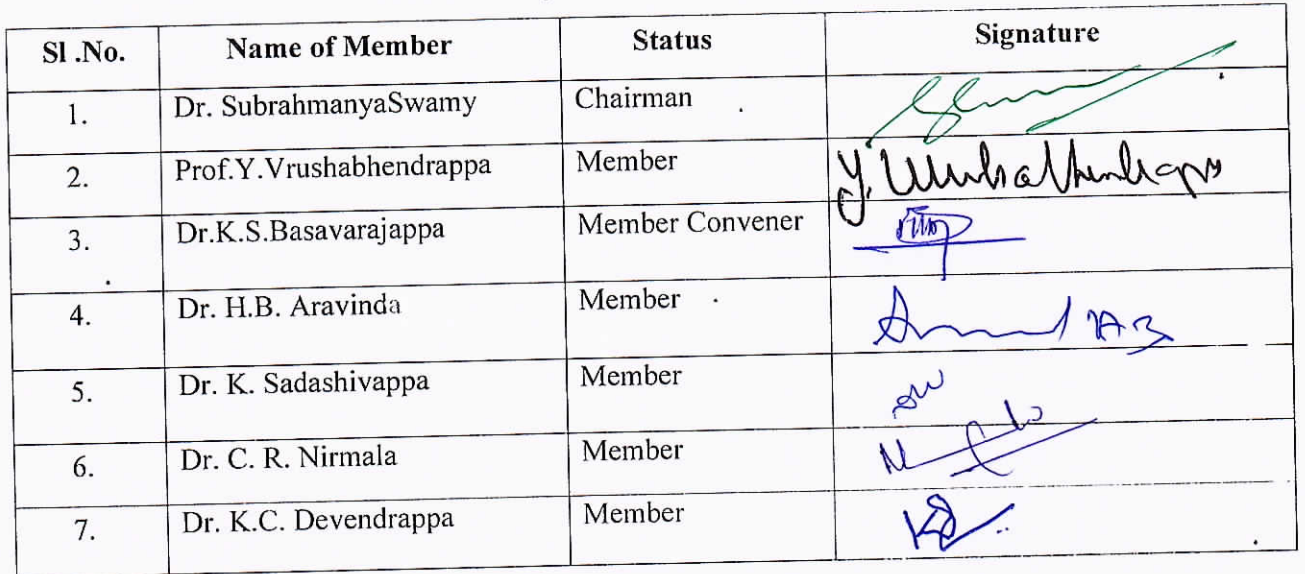 Sl .No. Name of Member Status Signature
1. Dr. SubrahmanyaSwamy Chairman
2. Prof.Y.Vrushabhendrappa Member Y. Vrushabhendrappa
3. Dr.K.S.Basavarajappa Member Convener
4. Dr. H.B. Aravinda Member
5. Dr. K. Sadashivappa Member
6. Dr. C. R. Nirmala Member
7. Dr. K.C. Devendrappa Member